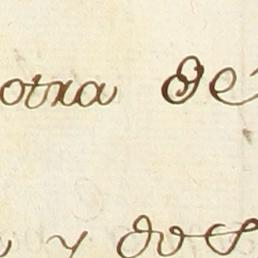 otra de
y dos